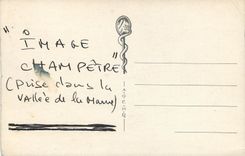 "IMAGE
CHAMPÊTRE"
(Prise dans la
Vallée de la Marne)